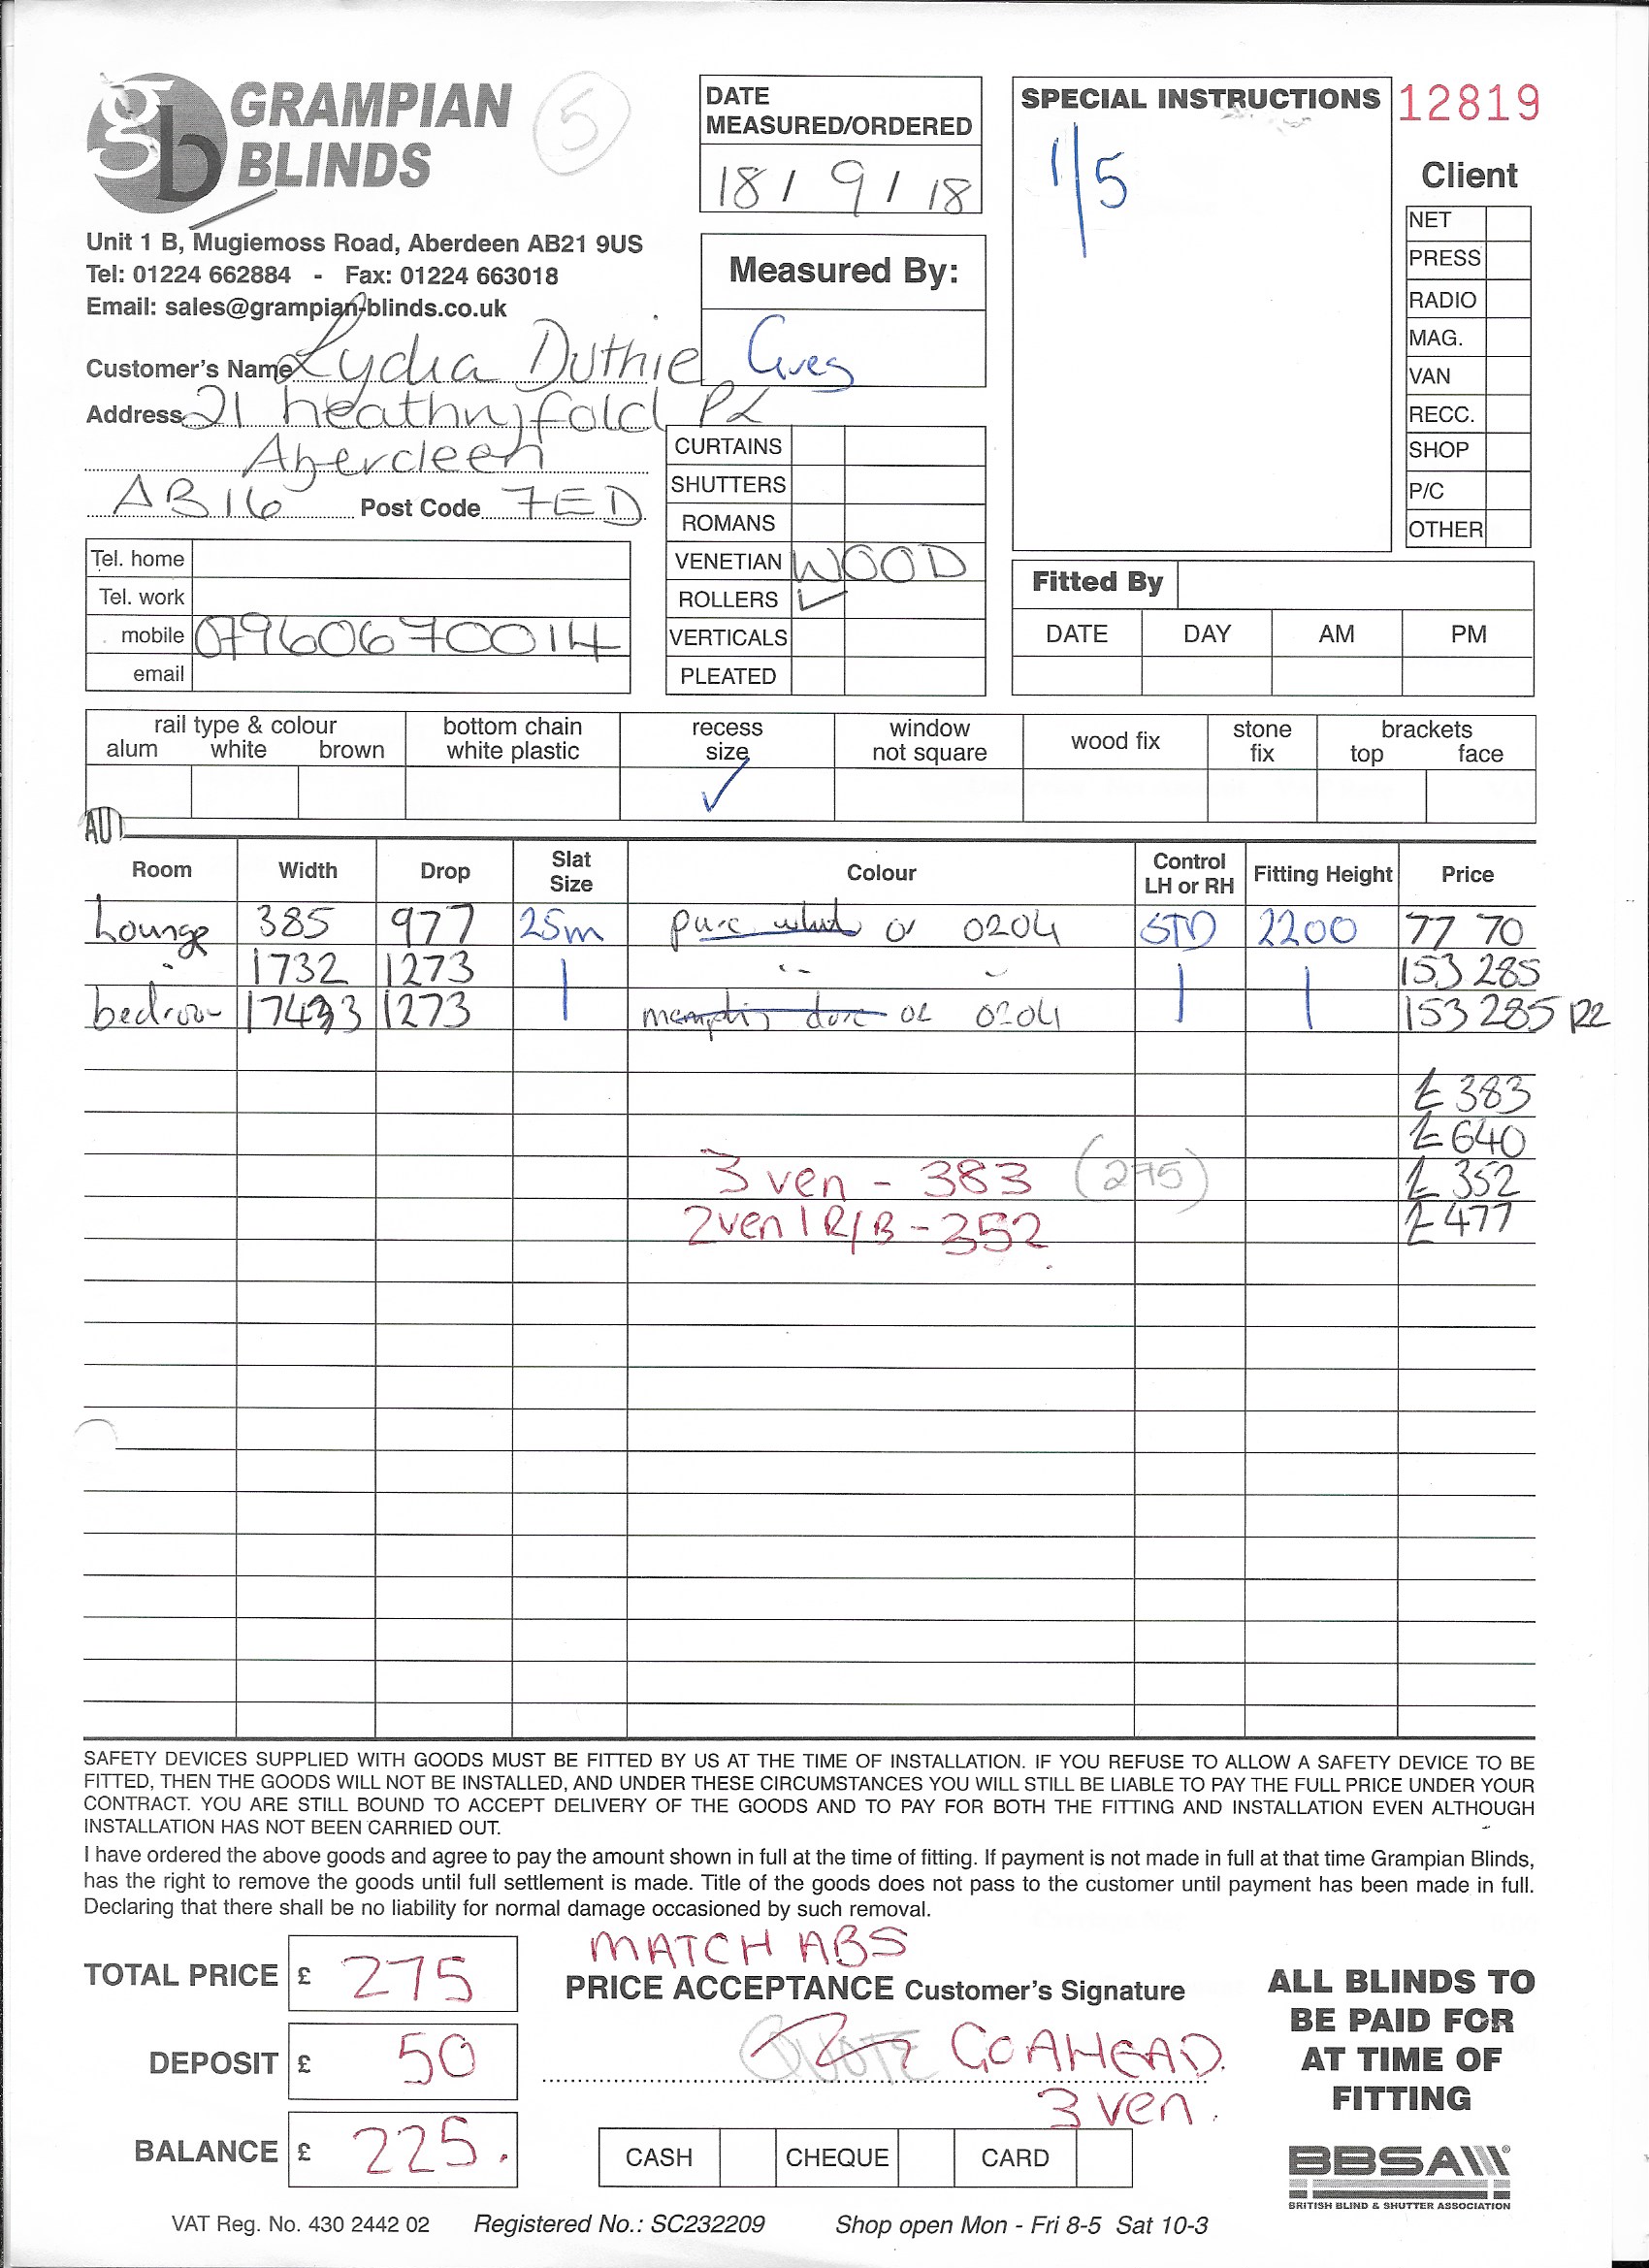 GRAMPIAN
BLINDS
5
Unit 1 B, Mugiemoss Road, Aberdeen AB21 9US
Tel: 01224 662884 - Fax: 01224 663018
Email: sales@grampian-blinds.co.uk
DATE
MEASURED/ORDERED
18 / 9 / 18
Measured By:
Greg
SPECIAL INSTRUCTIONS
1/5
12819
Client
NET
PRESS
RADIO
MAG.
VAN
RECC.
SHOP
P/C
OTHER
Customer's Name Lydia Duthie
Address 21 heathryfold PL
Aberdeen
AB16 Post Code 7ED
Tel. home
Tel. work
mobile 07960670014
email
CURTAINS
SHUTTERS
ROMANS
VENETIAN WOOD
ROLLERS ✓
VERTICALS
PLEATED
Fitted By
DATE DAY AM PM
rail type & colour
alum white brown
bottom chain
white plastic
recess
size
✓
window
not square
wood fix
stone
fix
brackets
top face
AU
Room Width Drop Slat Size Colour Control LH or RH Fitting Height Price
Lounge 385 977 25m pure white or 0204 STD 2200 77 70
1732 1273 153 285
bedroom 1273 or 0204 153 285 R2
£ 383
£ 640
3 ven - 383 (275) £ 352
2ven 1 R/B - 352 £ 477
SAFETY DEVICES SUPPLIED WITH GOODS MUST BE FITTED BY US AT THE TIME OF INSTALLATION. IF YOU REFUSE TO ALLOW A SAFETY DEVICE TO BE
FITTED, THEN THE GOODS WILL NOT BE INSTALLED, AND UNDER THESE CIRCUMSTANCES YOU WILL STILL BE LIABLE TO PAY THE FULL PRICE UNDER YOUR
CONTRACT. YOU ARE STILL BOUND TO ACCEPT DELIVERY OF THE GOODS AND TO PAY FOR BOTH THE FITTING AND INSTALLATION EVEN ALTHOUGH
INSTALLATION HAS NOT BEEN CARRIED OUT.
I have ordered the above goods and agree to pay the amount shown in full at the time of fitting. If payment is not made in full at that time Grampian Blinds,
has the right to remove the goods until full settlement is made. Title of the goods does not pass to the customer until payment has been made in full.
Declaring that there shall be no liability for normal damage occasioned by such removal.
TOTAL PRICE £ 275
DEPOSIT £ 50
BALANCE £ 225.
MATCH ABS
PRICE ACCEPTANCE Customer's Signature
QUOTE GOAHEAD.
3 ven.
CASH CHEQUE CARD
ALL BLINDS TO
BE PAID FOR
AT TIME OF
FITTING
BBSA
BRITISH BLIND & SHUTTER ASSOCIATION
VAT Reg. No. 430 2442 02 Registered No.: SC232209 Shop open Mon - Fri 8-5 Sat 10-3